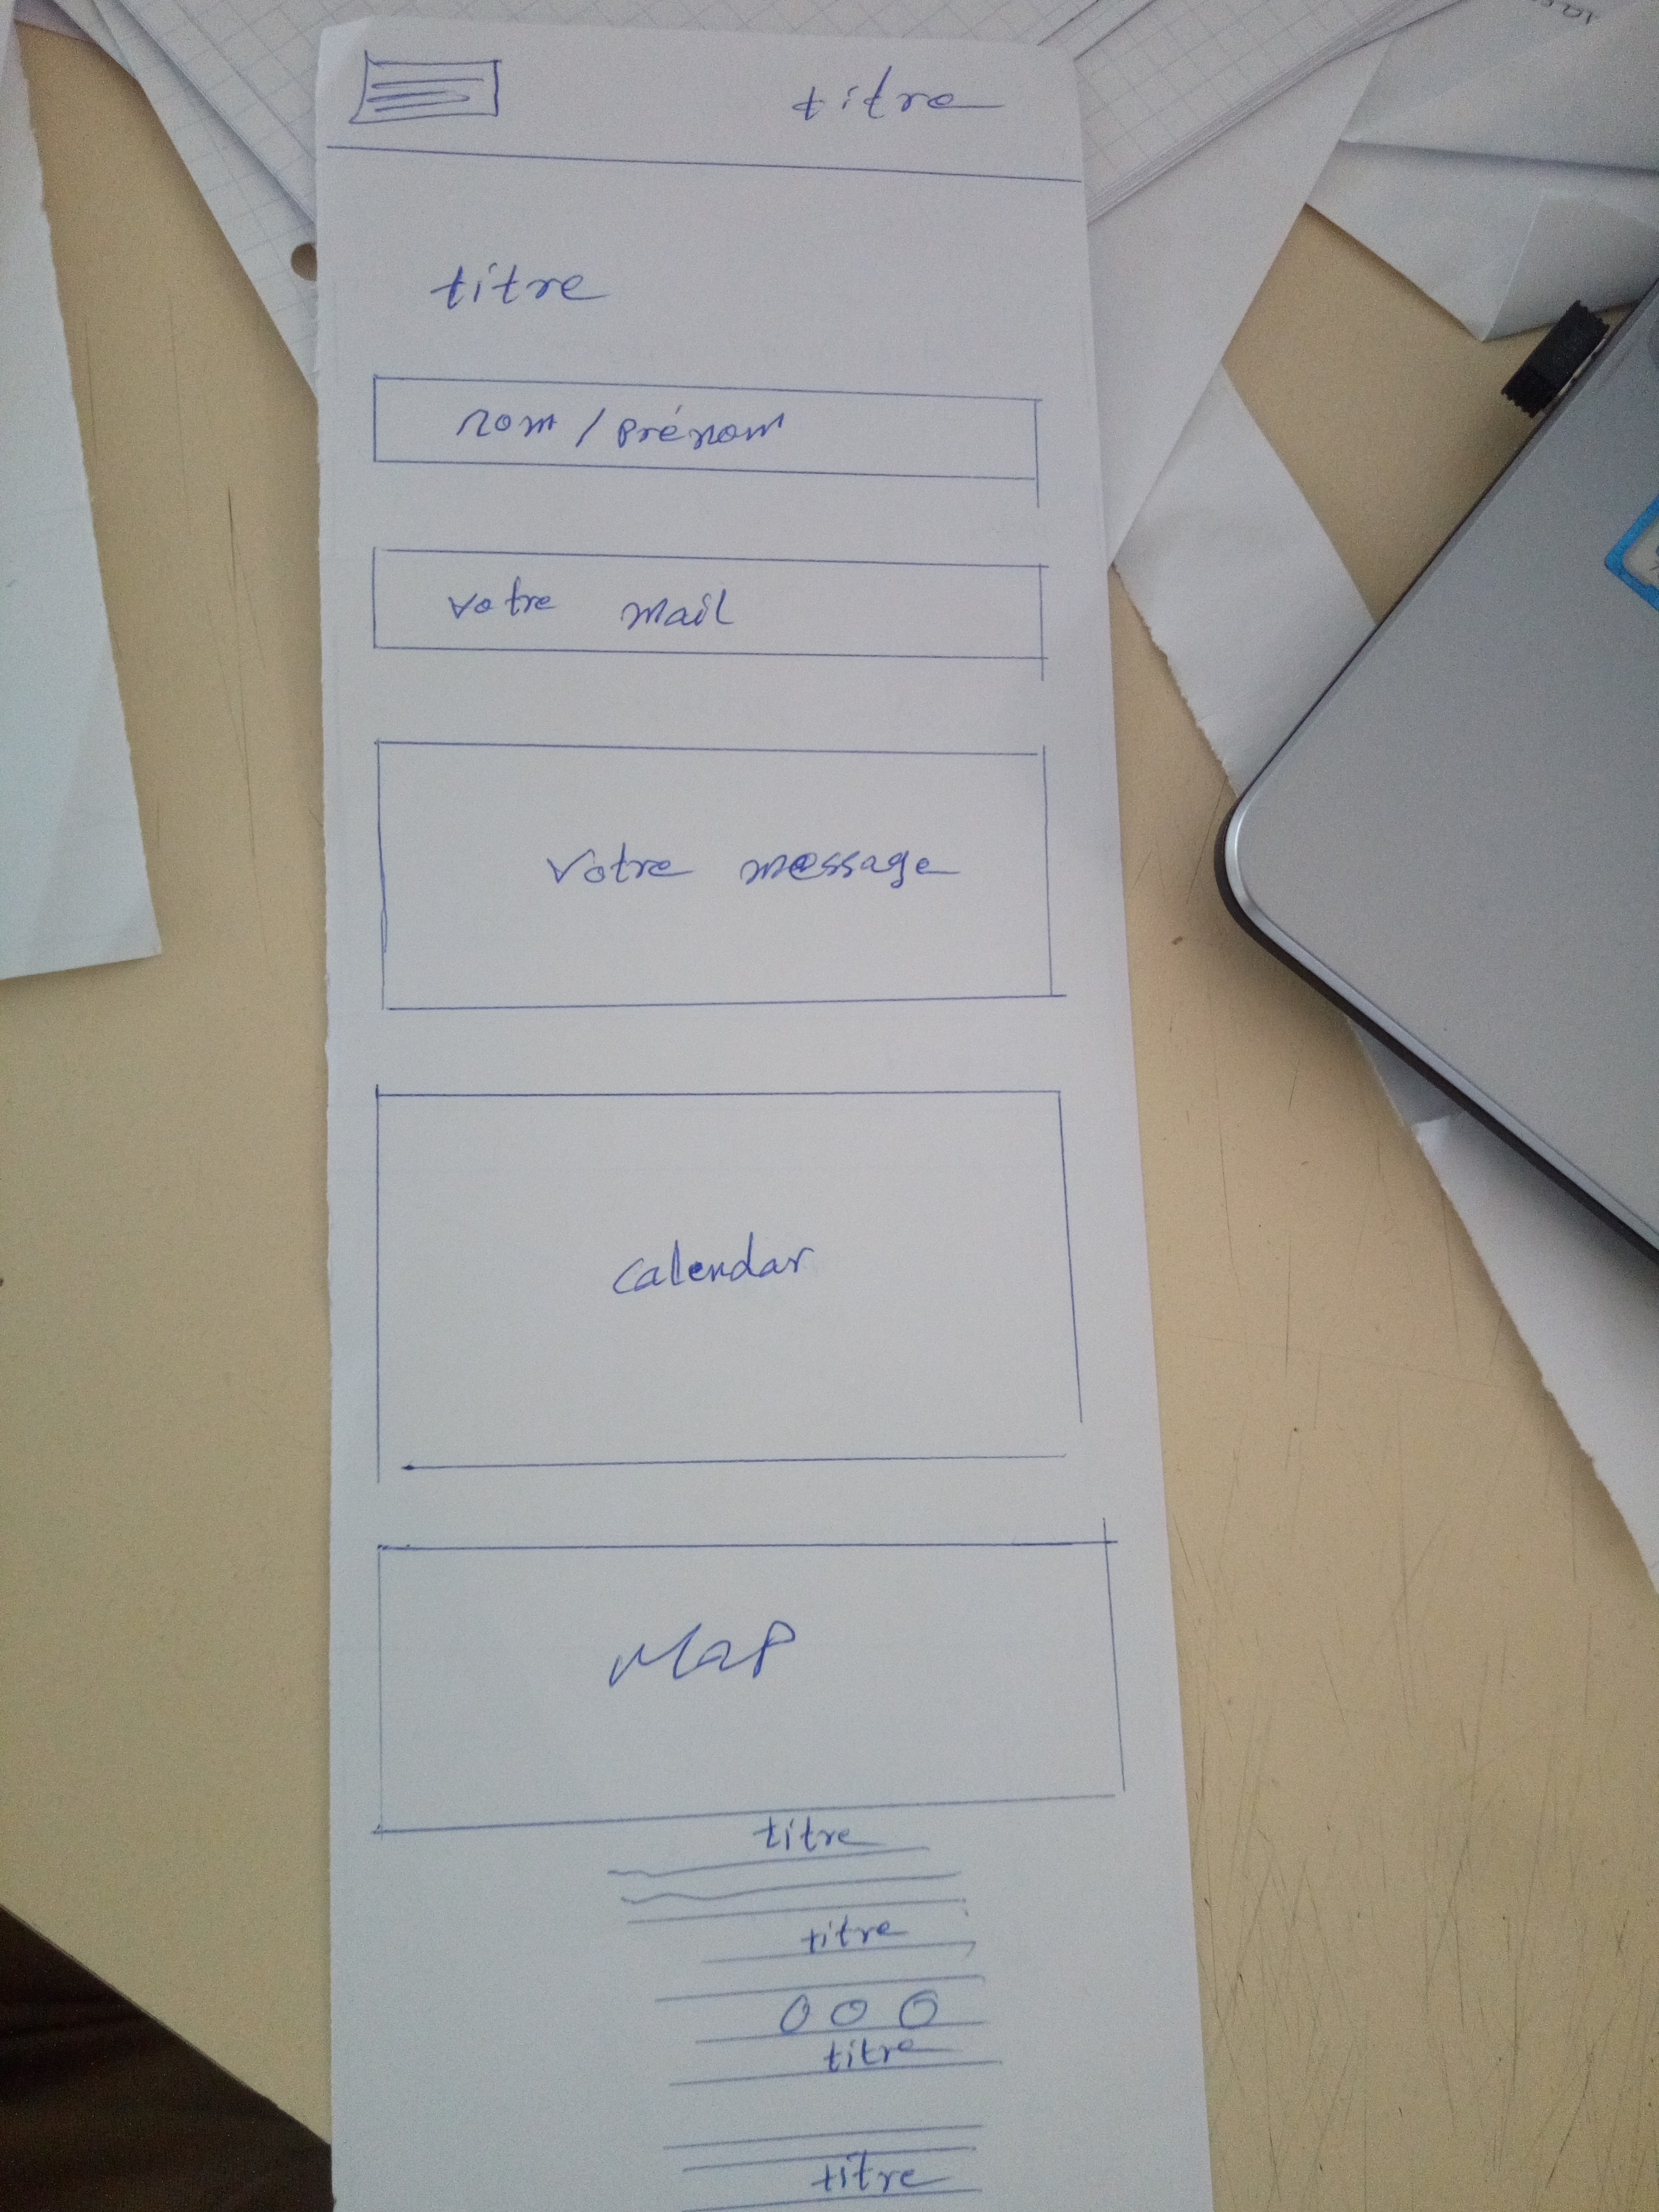 titre
titre
nom / prénom
votre mail
votre message
calendar
Map
titre
titre
titre
titre